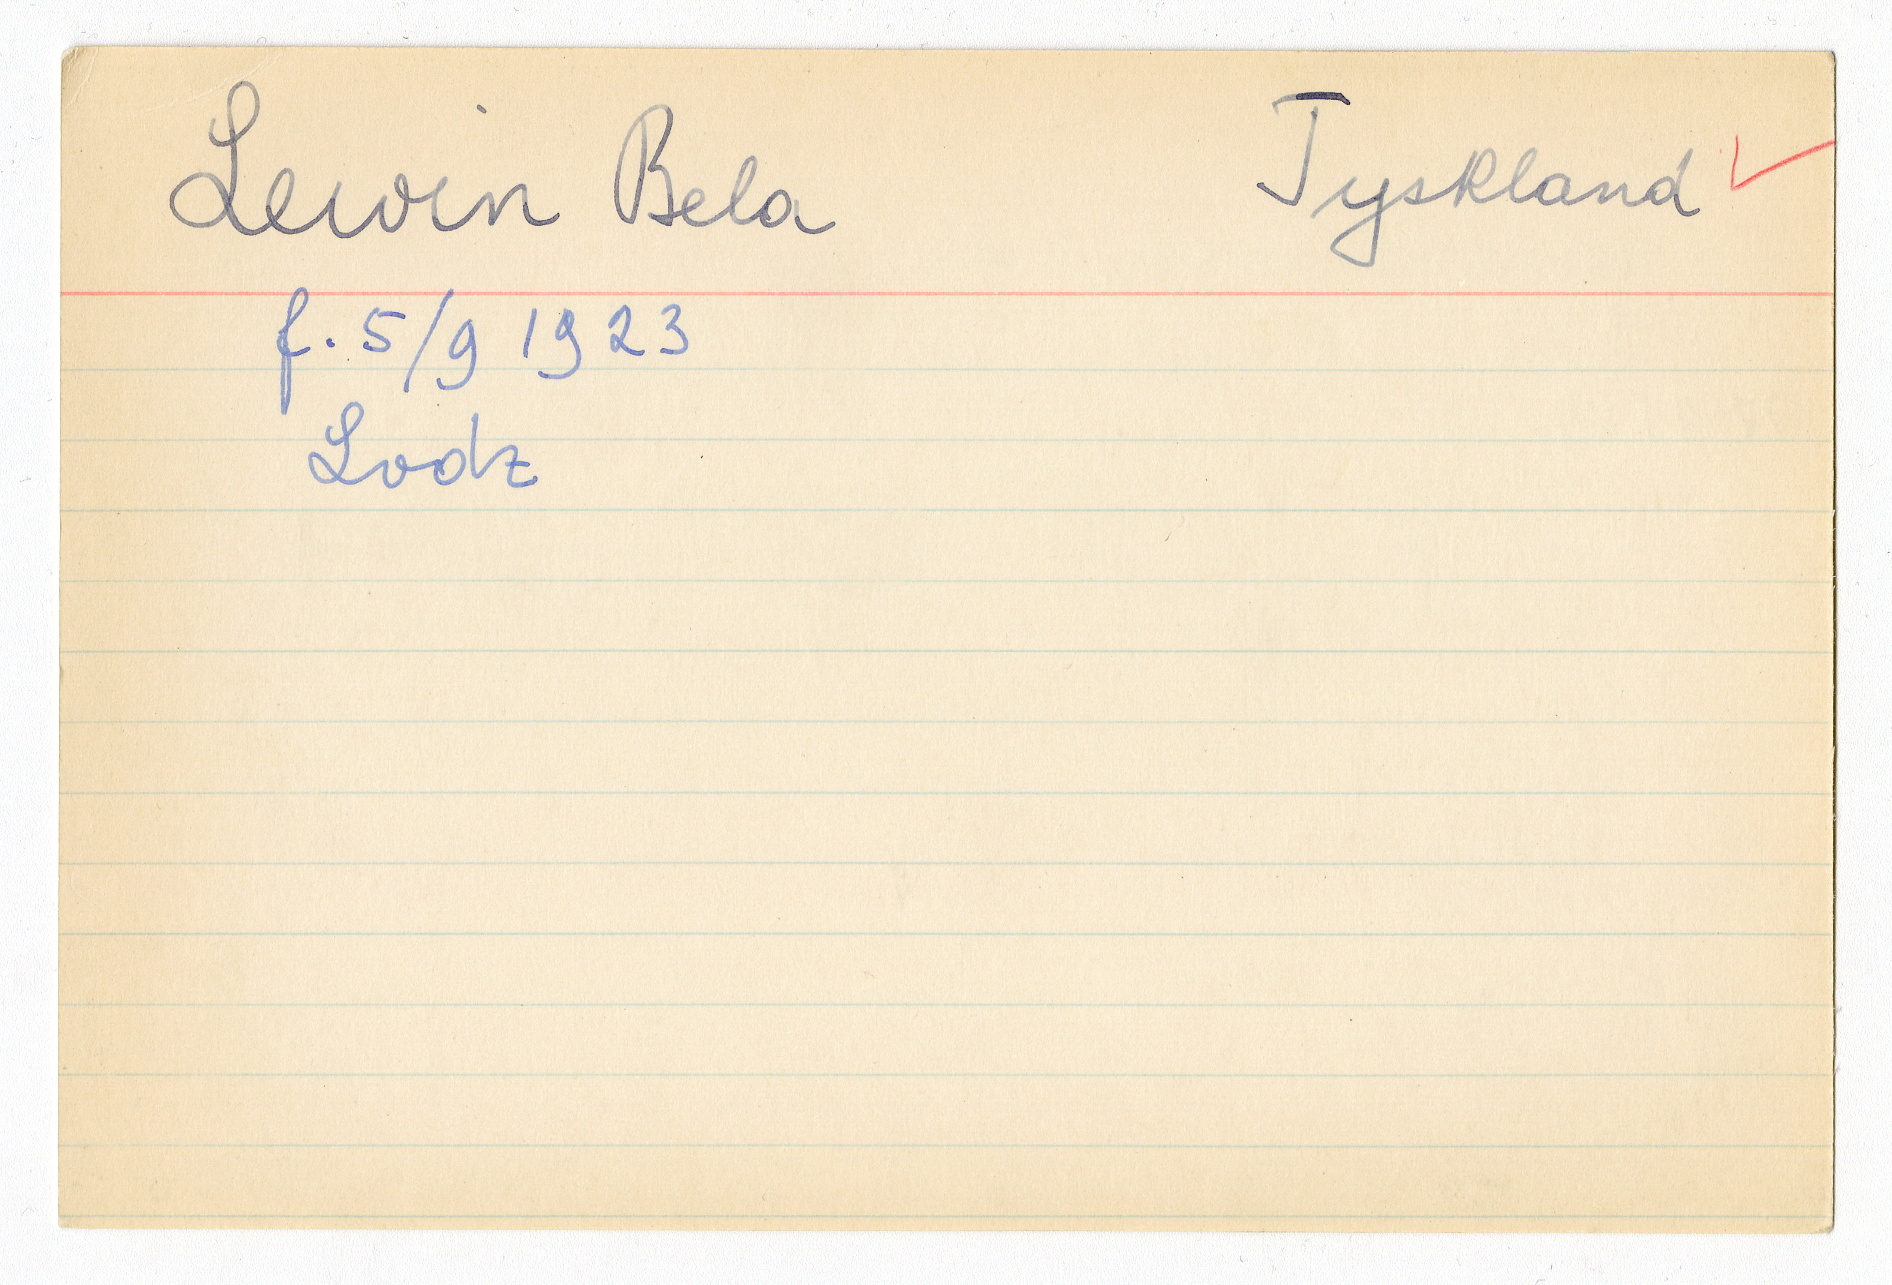 Lewin Bela Tyskland
f. 5/9 1923
Lodz